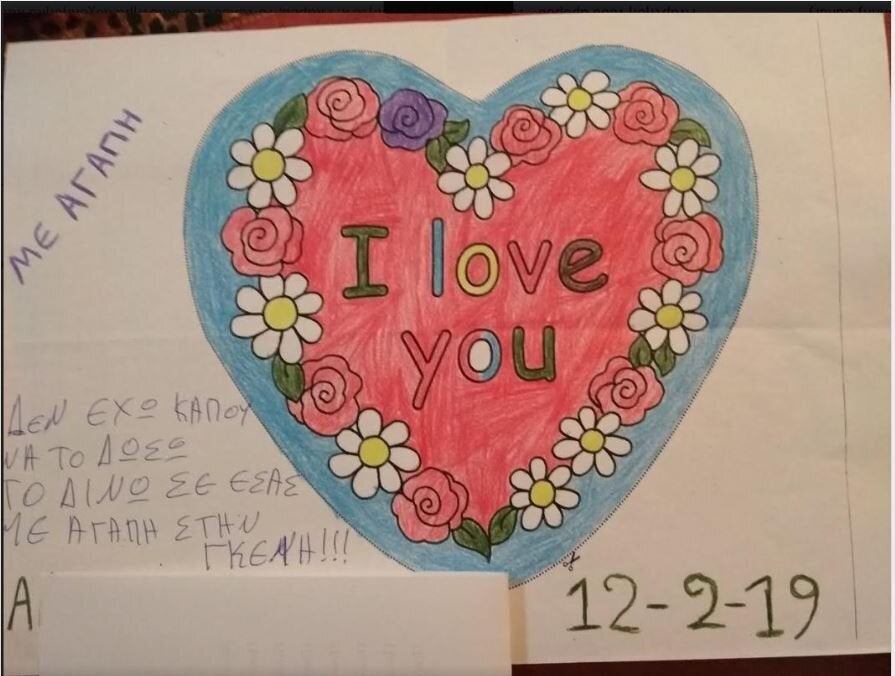 ΜΕ ΑΓΑΠΗ
I love
you
ΔΕΝ ΕΧΩ ΚΑΠΟΥ
ΝΑ ΤΟ ΔΩΣΩ
ΤΟ ΔΙΝΩ ΣΕ ΕΣΑΣ
ΜΕ ΑΓΑΠΗ ΣΤΗΝ
ΓΚΕΛΗ!!!
Α
12-2-19